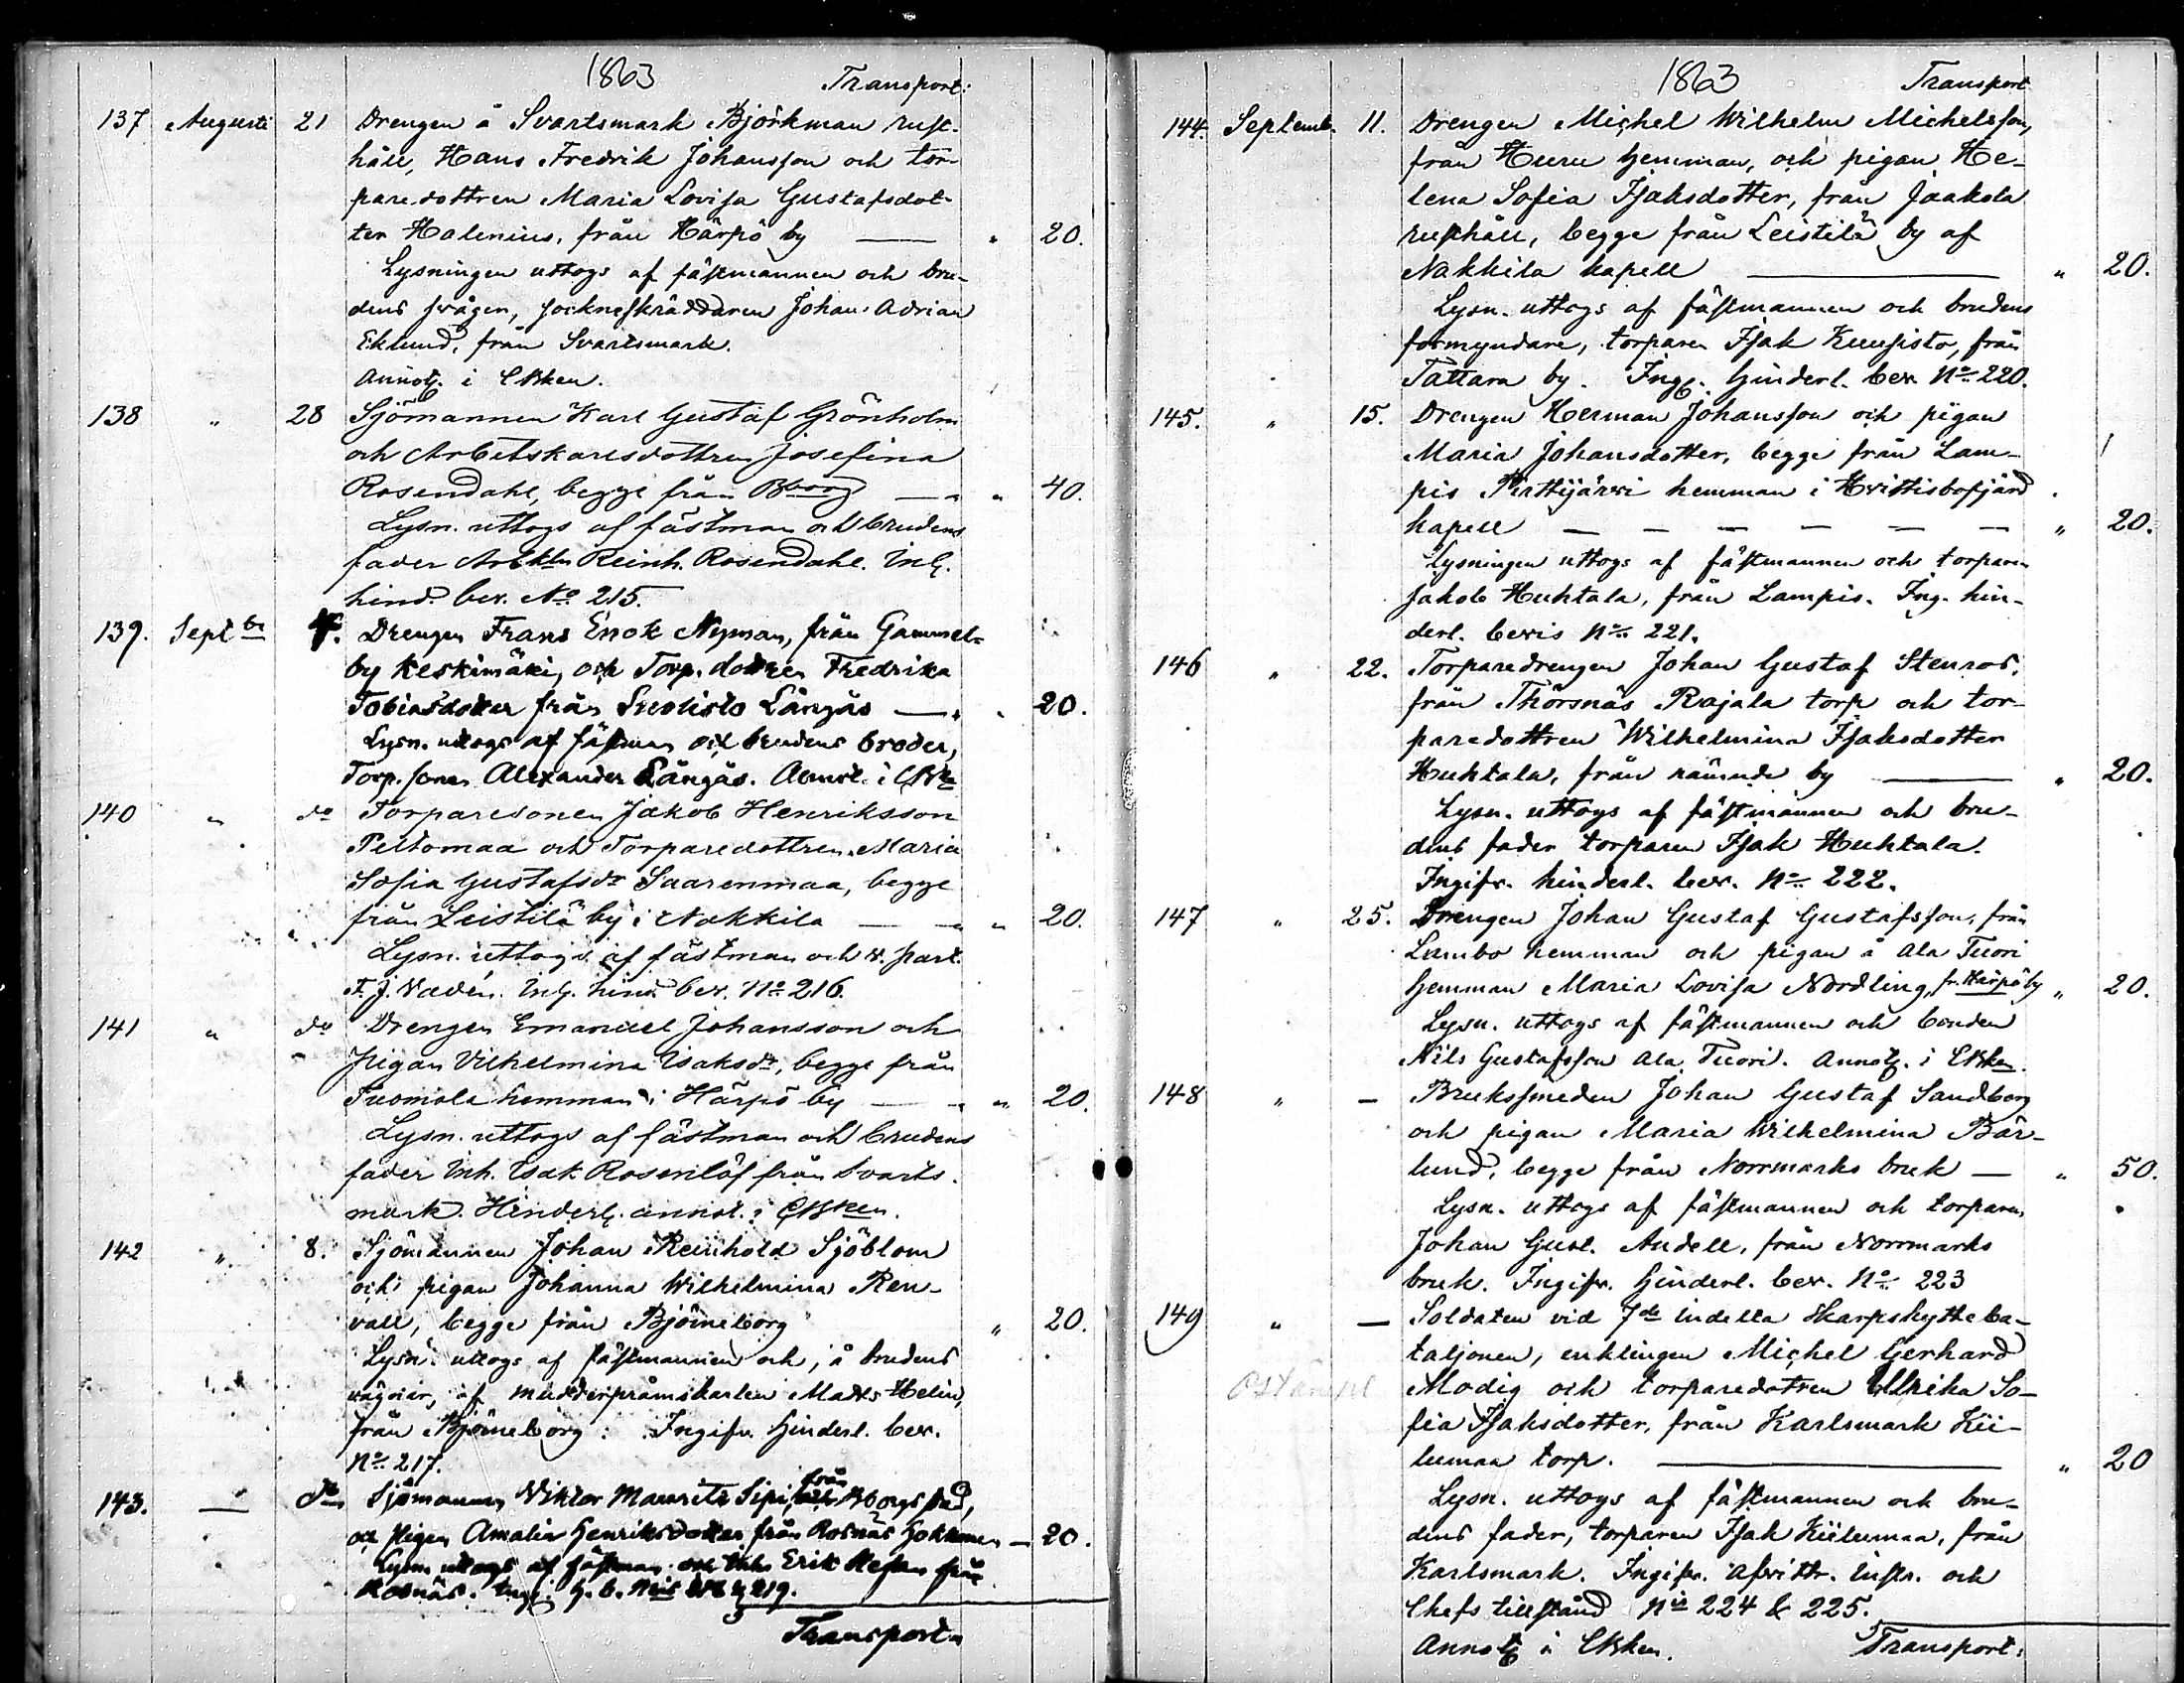 1863 Transport:
137 Augusti 21 Drengen å Svartsmark Björkman rust-
håll, Hans Fredrik Johansson och tor-
paredottren Maria Lovisa Gustafsdot-
ter Holenius, från Härpö by — " 20.
Lysningen uttogs af fästmannen och bru-
dens svåger, sockneskräddaren Johan Adrian
Eklund, från Svartsmark.
Annot. i CBken.
138 " 28 Sjömannen Karl Gustaf Grönholm
och Arbetskarlsdottren Josefina
Rosendahl, begge från Bborg — " 40.
Lysn. uttogs af fästman och brudens
fader Arbkln Reinh. Rosendahl. Ing.
hind. bev. No 215.
139. Septbr 4. Drengen Frans Enok Nyman, från Gammel-
by Keskimäki, och Torp. dottren Fredrika
Tobiasdotter från Långäs — " 20.
Lysn. uttogs af fästman och brudens broder,
Torp. sonen Alexander Långäs. Annot. i CBken
140 " do Torparesonen Jakob Henriksson
Peltomaa och Torparedottren Maria
Sofia Gustafsdr Saarenmaa, begge
från Leistilä by i Nakkila — " 20.
Lysn. uttogs af fästman och v. past.
F. J. Nadén. Ing. hind. bev. No 216.
141 " do Drengen Emanuel Johansson och
Pigan Vilhelmina Isaksdr, begge från
Tuomola hemman i Härpö by — " 20.
Lysn. uttogs af fästman och brudens
fader Inh. Isak Rosenlöf från Svarts-
mark. Hinderl. annot. i CBken.
142 " 8. Sjömannen Johan Reinhold Sjöblom
och pigan Johanna Wilhelmina Ren-
vall, begge från Björneborg " 20.
Lysn. uttogs af fästmannen och, å brudens
vägnar, af mudderpråmskarlen Matts Helin,
från Björneborg. Ingifv. hinderl. bev.
No 217.
143. — do Sjömannen Viktor Mauritz Sipi, från Bborgs stad,
och Pigan Amalia Henriksdotter från Rosnäs — 20.
Lysn. uttogs af fästman och Inh. Erik Stefan från
Rosnäs. Ing. h. b. Nris 218 & 219.
Transport.
1863 Transport
144. Septemb. 11. Drengen Michel Wilhelm Michelsson,
från Huru hemman, och pigan He-
lena Sofia Isaksdotter, från Jaakola
rusthåll, begge från Leistilä by af
Nakkila kapell — " 20.
Lysn. uttogs af fästmannen och brudens
formyndare, torparen Isak Kuusisto, från
Tattara by. Ing. hinderl. bev. No 220.
145. " 15. Drengen Herman Johansson och pigan
Maria Johansdotter, begge från Lam-
pis Perttijärvi hemman i Hvittisbofjärd
kapell — — — — — — " 20.
Lysningen uttogs af fästmannen och torparen
Jakob Huhtala, från Lampis. Ing. hin-
derl. bevis No 221.
146 " 22. Torparedrengen Johan Gustaf Stenros,
från Thorsnäs Rajala torp och tor-
paredottren Wilhelmina Isaksdotter
Huhtala, från nämnde by — " 20.
Lysn. uttogs af fästmannen och bru-
dens fader torparen Isak Huhtala.
Ingifv. hinderl. bev. No 222.
147 " 25. Drengen Johan Gustaf Gustafsson, från
Lambo hemman och pigan å Ala Tuori
hemman Maria Lovisa Nordling, fr. Härpö by " 20.
Lysn. uttogs af fästmannen och bonden
Nils Gustafsson Ala Tuori. Annot. i CBken.
148 " — Bruksmeden Johan Gustaf Sandberg
och pigan Maria Wilhelmina Bär-
lund, begge från Norrmarks bruk — " 50.
Lysn. uttogs af fästmannen och torparen
Johan Gust. Andell, från Norrmarks
bruk. Ingifv. hinderl. bev. No 223
149 " — Soldaten vid 7de indelta skarpskytteba-
taljonen, enklingen Michel Gerhard
Modig och torparedotren Ulrika So-
fia Isaksdotter, från Karlsmark Kii-
lumaa torp. — " 20
Lysn. uttogs af fästmannen och bru-
dens fader, torparen Isak Kiilumaa, från
Karlsmark. Ingifv. afvittr. instr. och
Chefs tillstånd Nris 224 & 225.
Annot. i CBken. Transport: